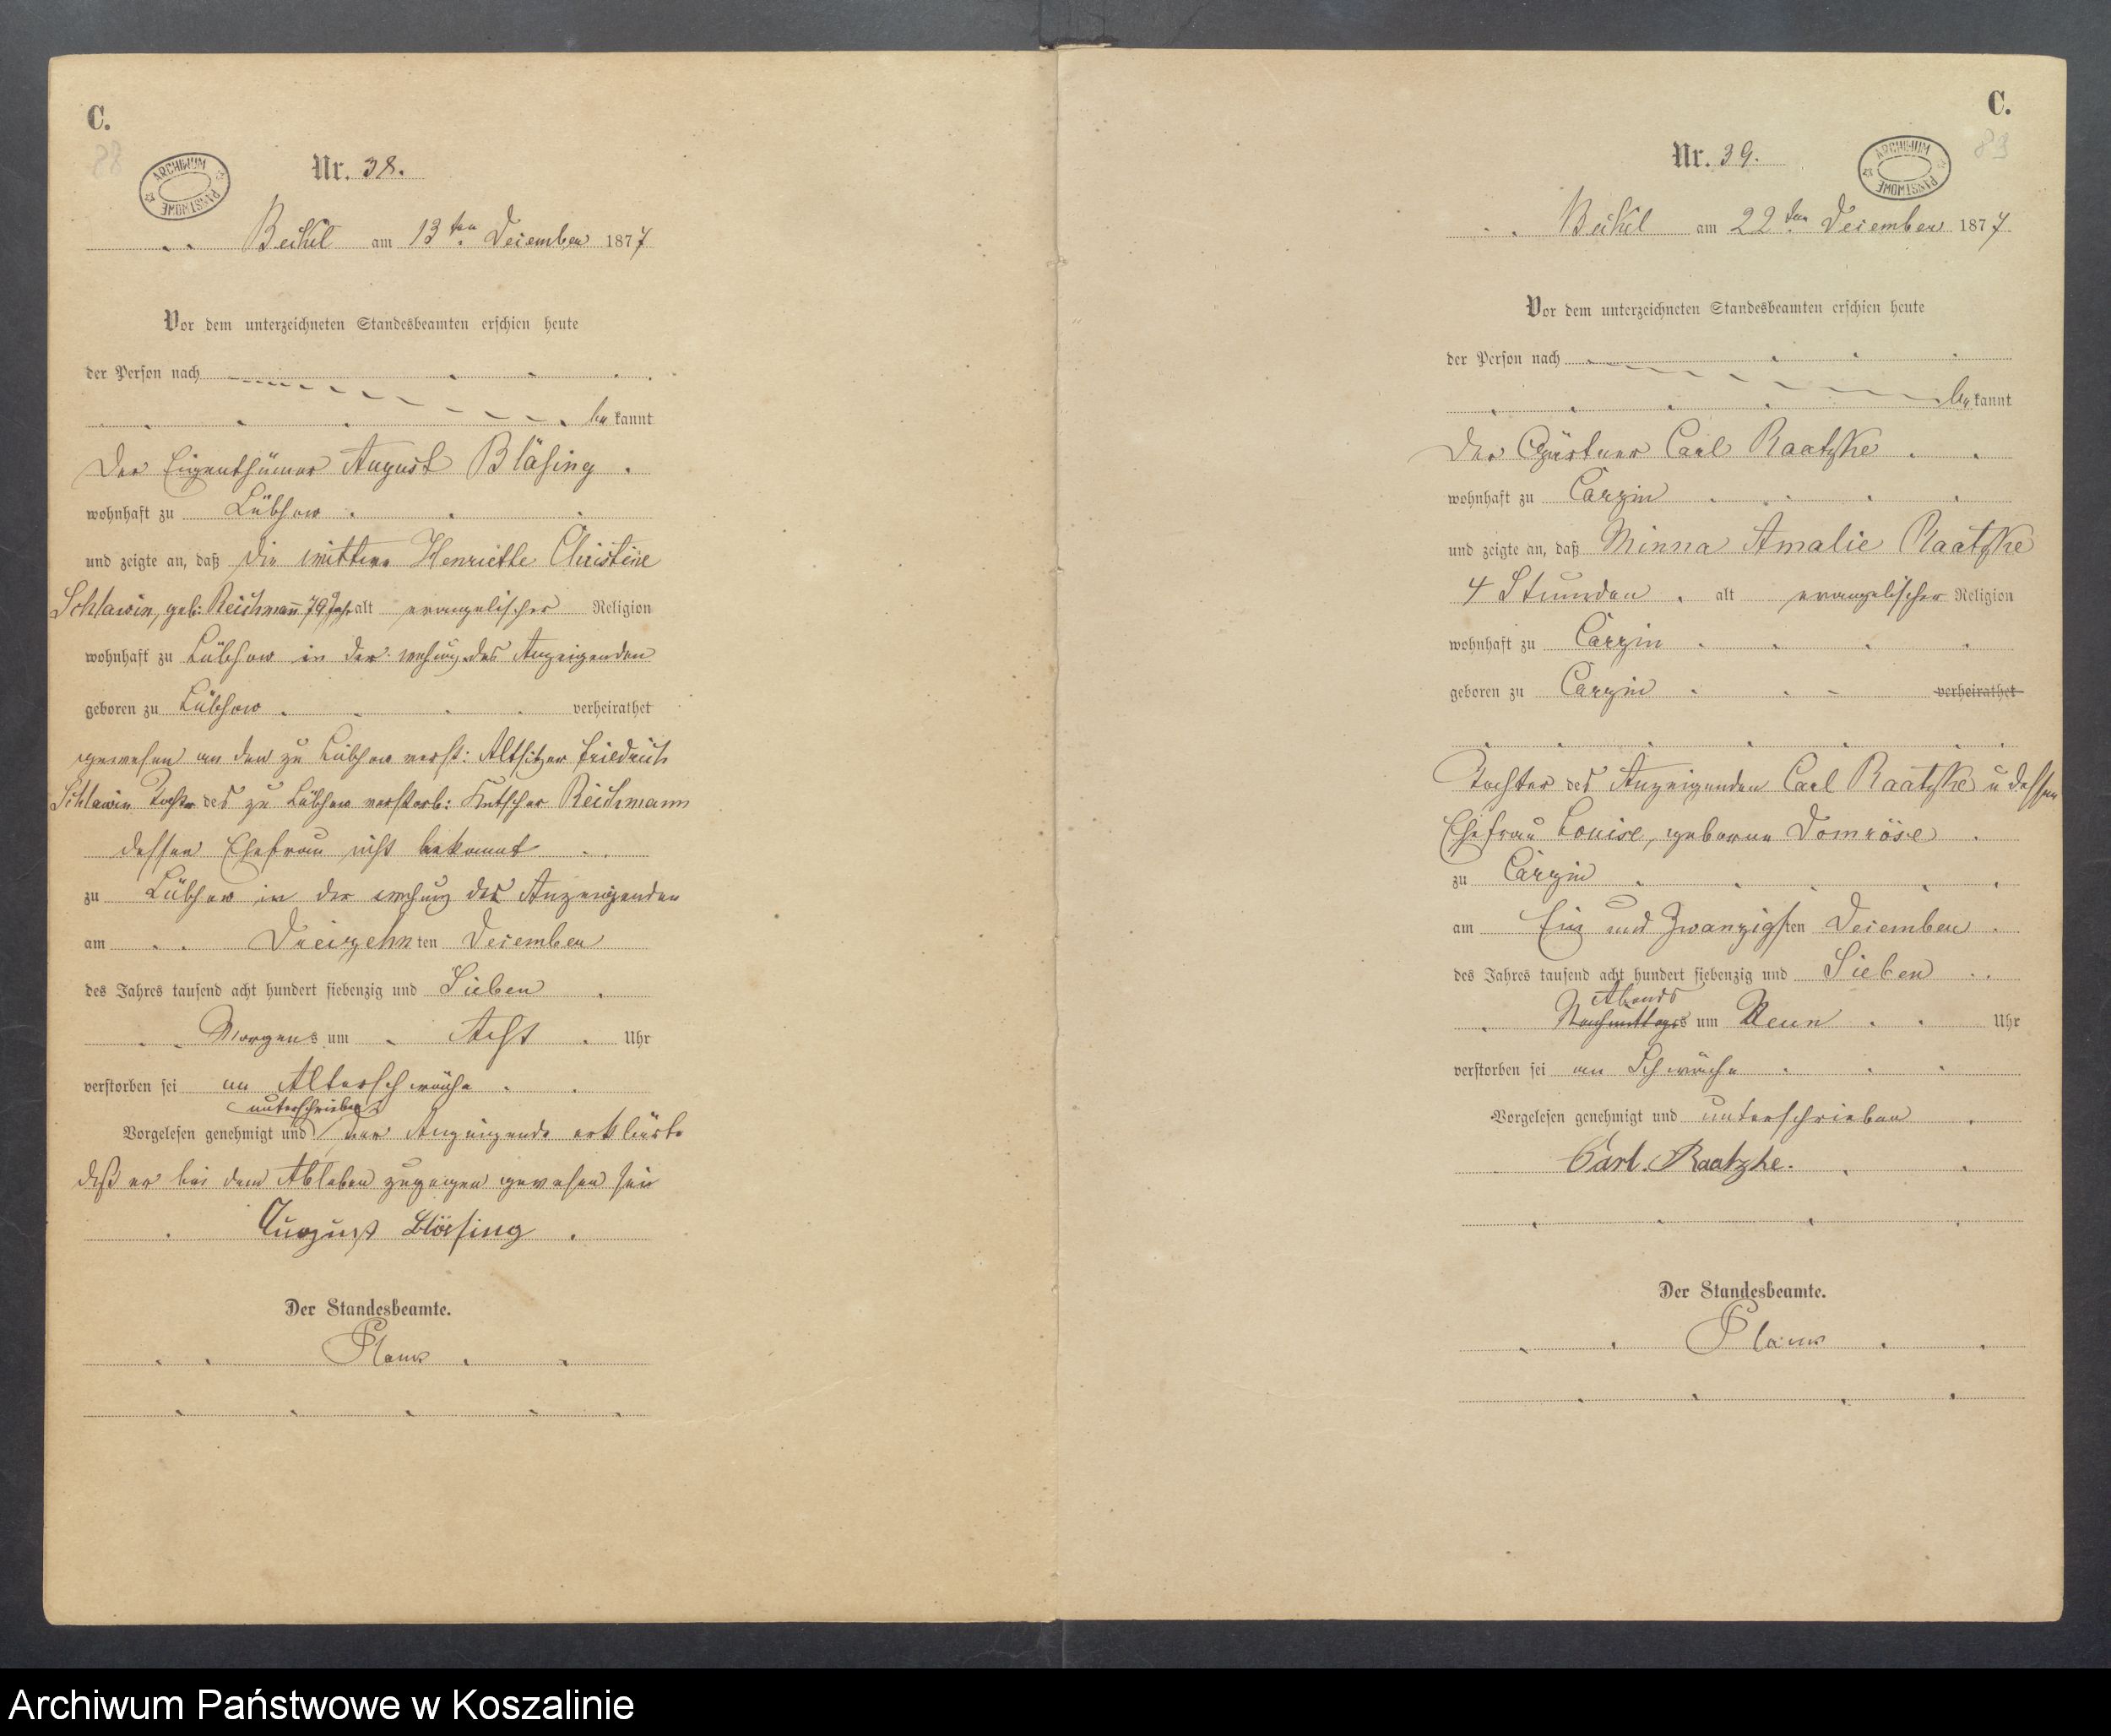 C.
88
ARCHIWUM PAŃSTWOWE
Nr. 38.
Beikel am 13ten December 1877
Vor dem unterzeichneten Standesbeamten erschien heute
der Person nach
bekannt
Der Eigenthümer August Bläsing
wohnhaft zu Lübsow
und zeigte an, daß die Henriette Christine
Schlawin, geb: Reichmann 79 Jahr alt evangelischer Religion
wohnhaft zu Lübsow in der des Anzeigenden
geboren zu Lübsow verheirathet
gewesen an den zu Lübsow verst: Altsitzer Friedrich
Schlawin Tochter des zu Lübsow verstorb: Kutscher Reichmann
dessen Ehefrau nicht bekannt
zu Lübsow in der des Anzeigenden
am Dreizehnten December
des Jahres tausend acht hundert siebenzig und Sieben
Morgens um Acht Uhr
verstorben sei an Altersschwäche
unterschrieben
Vorgelesen genehmigt und der Anzeigende erklärte
daß er bei dem Ableben zugegen gewesen sei
August Bläsing
Der Standesbeamte.
C.
89
ARCHIWUM PAŃSTWOWE
Nr. 39.
Beikel am 22ten December 1877.
Vor dem unterzeichneten Standesbeamten erschien heute
der Person nach
bekannt
Der Gärtner Carl Raatzke
wohnhaft zu Carzin
und zeigte an, daß Minna Amalie Raatzke
4 Stunden alt evangelischer Religion
wohnhaft zu Carzin
geboren zu Carzin verheirathet
Tochter des Anzeigenden Carl Raatzke u dessen
Ehefrau Louise, geborne Domröse
zu Carzin
am Ein und Zwanzigsten December
des Jahres tausend acht hundert siebenzig und Sieben
Abends
Nachmittags um Neun Uhr
verstorben sei an Schwäche
Vorgelesen genehmigt und unterschrieben
Carl. Raatzke.
Der Standesbeamte.
Archiwum Państwowe w Koszalinie